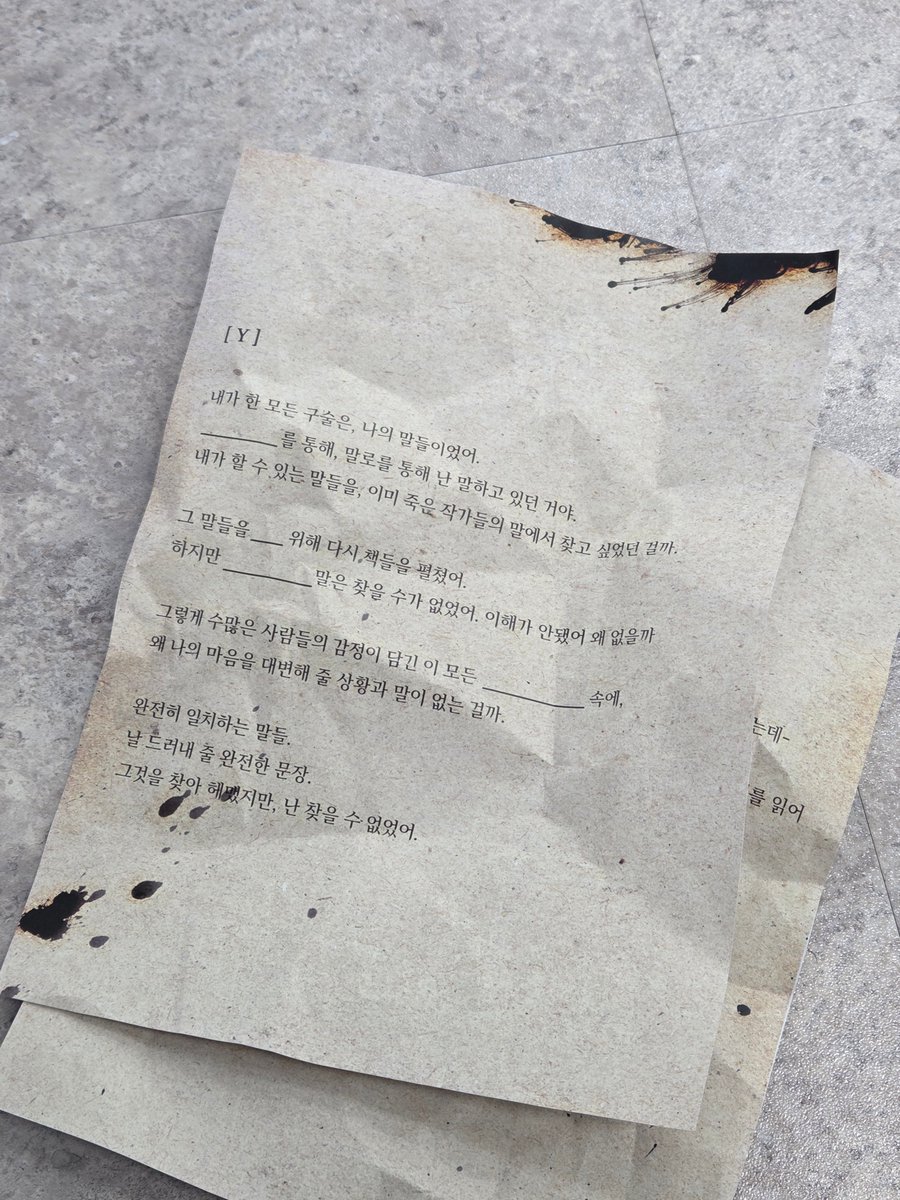 [ Y ]
내가 한 모든 구술은, 나의 말들이었어.
________를 통해, 말로를 통해 난 말하고 있던 거야.
내가 할 수 있는 말들을, 이미 죽은 작가들의 말에서 찾고 싶었던 걸까.
그 말들을___ 위해 다시 책들을 펼쳤어.
하지만 _________ 말은 찾을 수가 없었어. 이해가 안됐어 왜 없을까
그렇게 수많은 사람들의 감정이 담긴 이 모든 __________ 속에,
왜 나의 마음을 대변해 줄 상황과 말이 없는 걸까.
완전히 일치하는 말들.
날 드러내 줄 완전한 문장.
그것을 찾아 헤맸지만, 난 찾을 수 없었어.
는데-
를 읽어